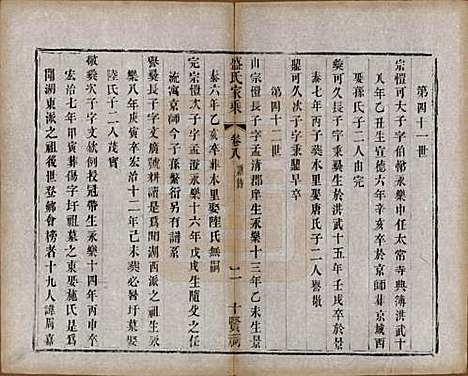 第四十一世
宗愷可大子字伯郁永樂中任太常寺典簿洪武十
八年乙丑生宣德六年辛亥卒於京師葬京城西
娶孫氏子二人由完
奭可久長子字秉彝生於洪武十五年壬戌卒於景
泰七年丙子葬木里娶唐氏子二人譽敬
麗可久次子字秉驪早卒
第四十二世
由宗愷長子字孟清郡庠生永樂十三年乙未生景
泰六年乙亥卒葬木里娶陸氏無嗣
完宗愷次子字孟 永樂十六年戊戌生隨父任
流寓京師今子孫繁衍另有譜系
譽奭長子字文廣號耕讀是爲開湖西派之祖生永
樂八年庚寅卒宏治十二年己未葬必暑圩墓娶
陸氏子二人茂實
敬奭次子字文 例授冠帶生永樂十四年丙申卒
宏治七年甲寅葬傷字圩祖墓之東娶施氏是爲
開湖東派之祖後世登鄉會榜者十九人諱周嘉
盛氏家乘
卷八
譜傳
二
十賢祠